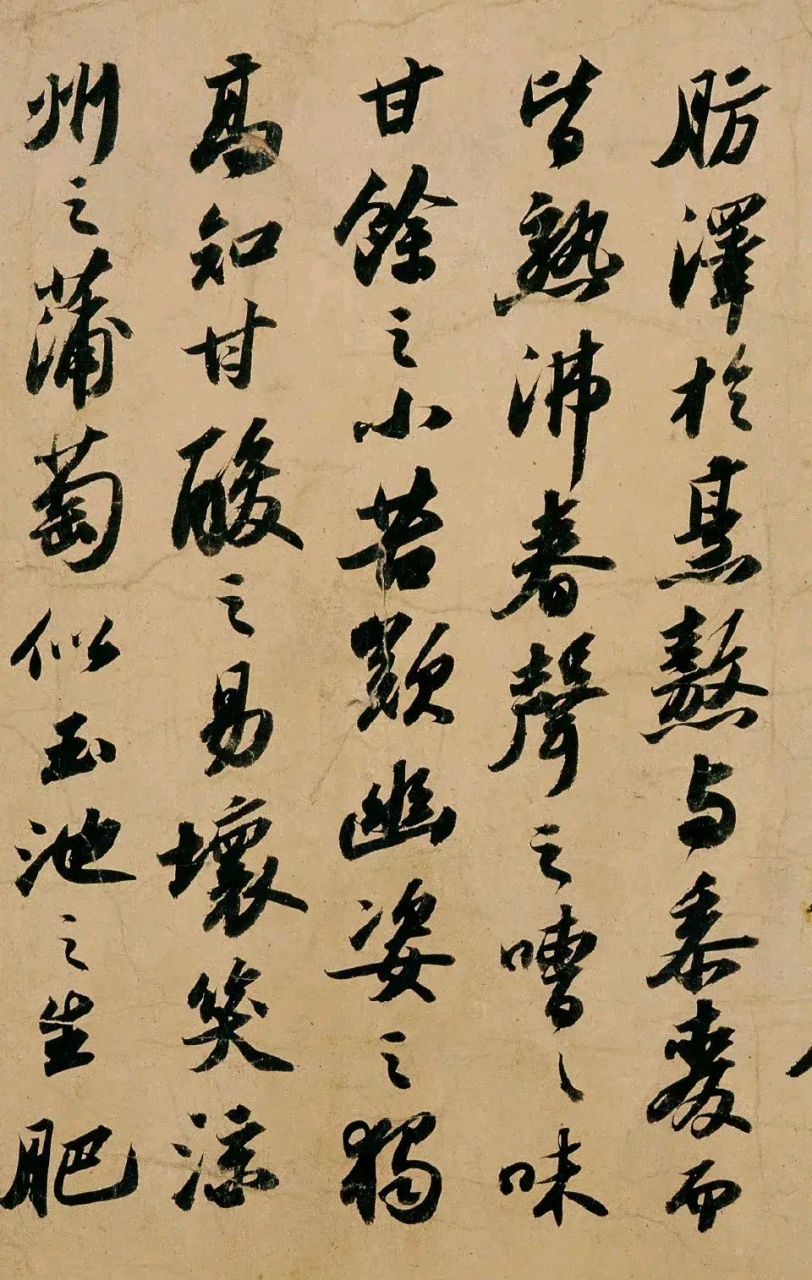 肪澤於烹熬与黍麥而
皆熟沸舂聲之嘈々味
甘餘之小苦歎幽姿之獨
高知甘酸之易壞笑涼
州之蒲萄似玉池之生肥